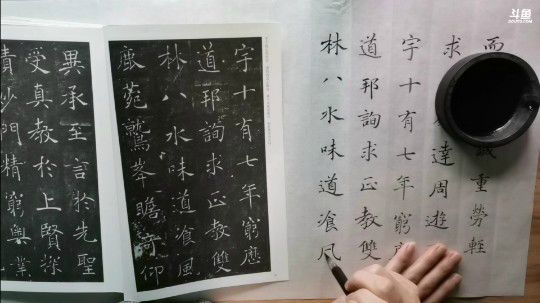 而誠重勞輕
求達周遊
宇十有七年窮
道邦詢求正教雙
林八水味道飡风
宇十有七年窮歷
道邦詢求正教雙
林八水味道飡風
鹿菀鷲峯瞻奇仰
異承至言於先聖
受真教於上賢探
賾妙門精窮奧業
斗鱼